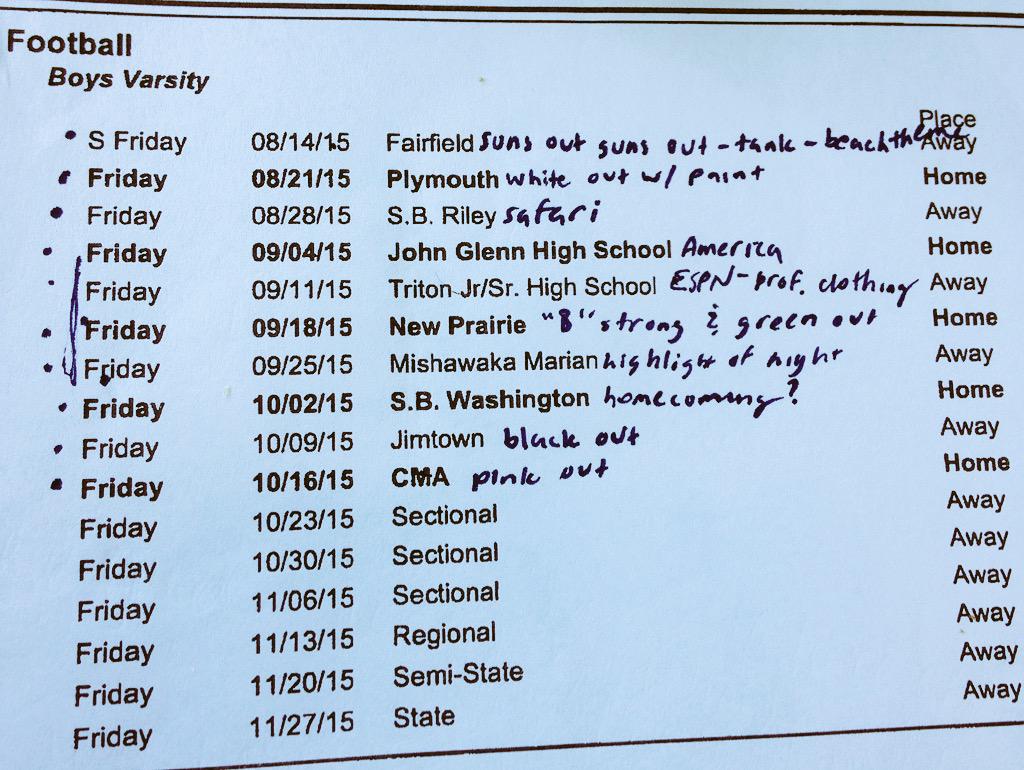 Football
Boys Varsity
Place
S Friday 08/14/15 Fairfield suns out guns out - tank - beach theme Away
Friday 08/21/15 Plymouth white out w/ paint Home
Friday 08/28/15 S.B. Riley safari Away
Friday 09/04/15 John Glenn High School America Home
Friday 09/11/15 Triton Jr/Sr. High School ESPN - prof. clothing Away
Friday 09/18/15 New Prairie "B" strong & green out Home
Friday 09/25/15 Mishawaka Marian highlight of night Away
Friday 10/02/15 S.B. Washington homecoming? Home
Friday 10/09/15 Jimtown black out Away
Friday 10/16/15 CMA pink out Home
Friday 10/23/15 Sectional Away
Friday 10/30/15 Sectional Away
Friday 11/06/15 Sectional Away
Friday 11/13/15 Regional Away
Friday 11/20/15 Semi-State Away
Friday 11/27/15 State Away